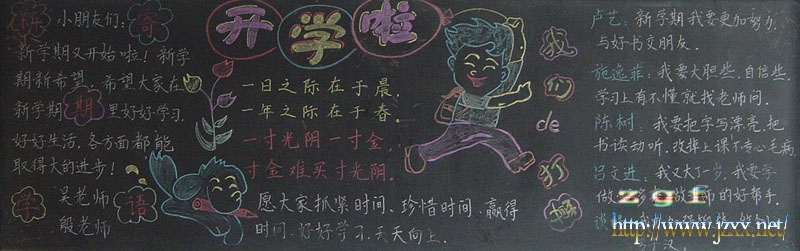 开学啦
小朋友们:
新学期又开始啦!新学
期新希望,希望大家在
新学期里好好学习,
好好生活,各方面都能
取得大的进步!
吴老师
殷老师
寄
期
学
语
一日之际在于晨,
一年之际在于春。
一寸光阴一寸金,
寸金难买寸光阴。
愿大家抓紧时间、珍惜时间、赢得
时间.好好学习.天天向上.
我
们
de
打
卢艺:新学期我要更加努力,
与好书交朋友.
施逸菲:我要大胆些,自信些,
学习上有不懂就找老师问.
陈树:我要把字写漂亮,把
书读动听,改掉上课不专心毛病.
吕文进:我又大了一岁,我要学
做
师的好帮手.
zgf
http://www.jzxx.net/